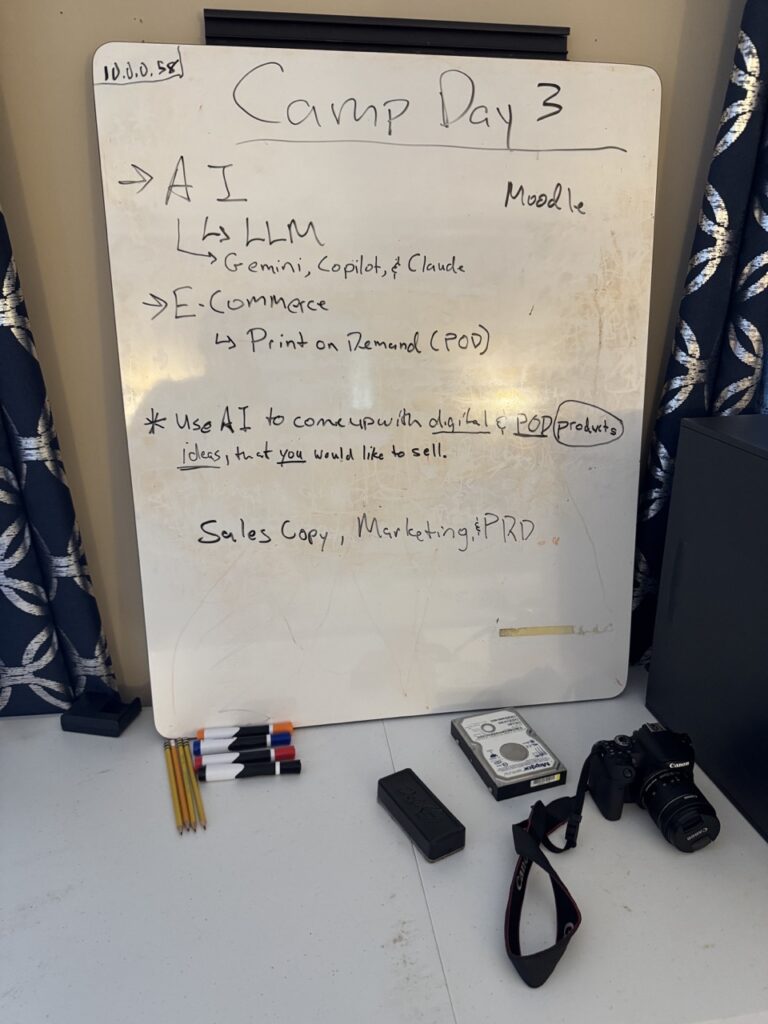 10.0.0.58
Camp Day 3
→ AI
Moodle
↳ LLM
↳ Gemini, Copilot, & Claude
→ E-Commerce
↳ Print on Demand (POD)
* Use AI to come up with digital & POD products
ideas, that you would like to sell.
Sales Copy, Marketing, & PRD
Maxtor
Canon
Canon